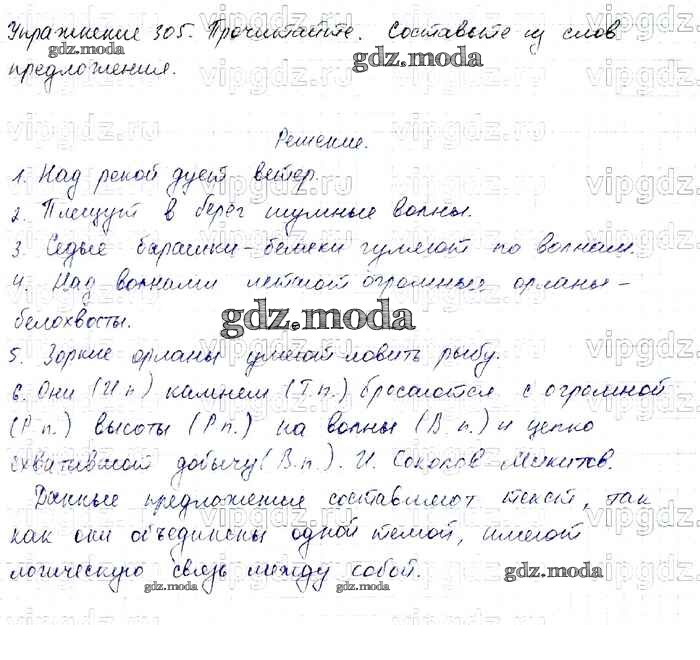 Упражнение 305. Прочитайте. Составьте из слов
gdz.moda
gdz.moda
предложения.
vipgdz.ru
Решение.
1. Над рекой дует ветер.
2. Плещут в берег шумные волны.
3. Седые барашки-беляки гуляют по волнам.
4. Над волнами летают огромные орланы-
белохвосты.
gdz.moda
5. Зоркие орланы умеют ловить рыбу.
6. Они (И п) камнем (Т.п.) бросаются с огромной
(Р п.) высоты (Р п.) на волны (В. п.) и цепко
добычу (В.п). И. Соколов-Микитов.
Данные предложения составляют текст, так
как они объединены одной темой, имеют
логическую связь между собой.
gdz.moda
gdz.moda
gdz.moda